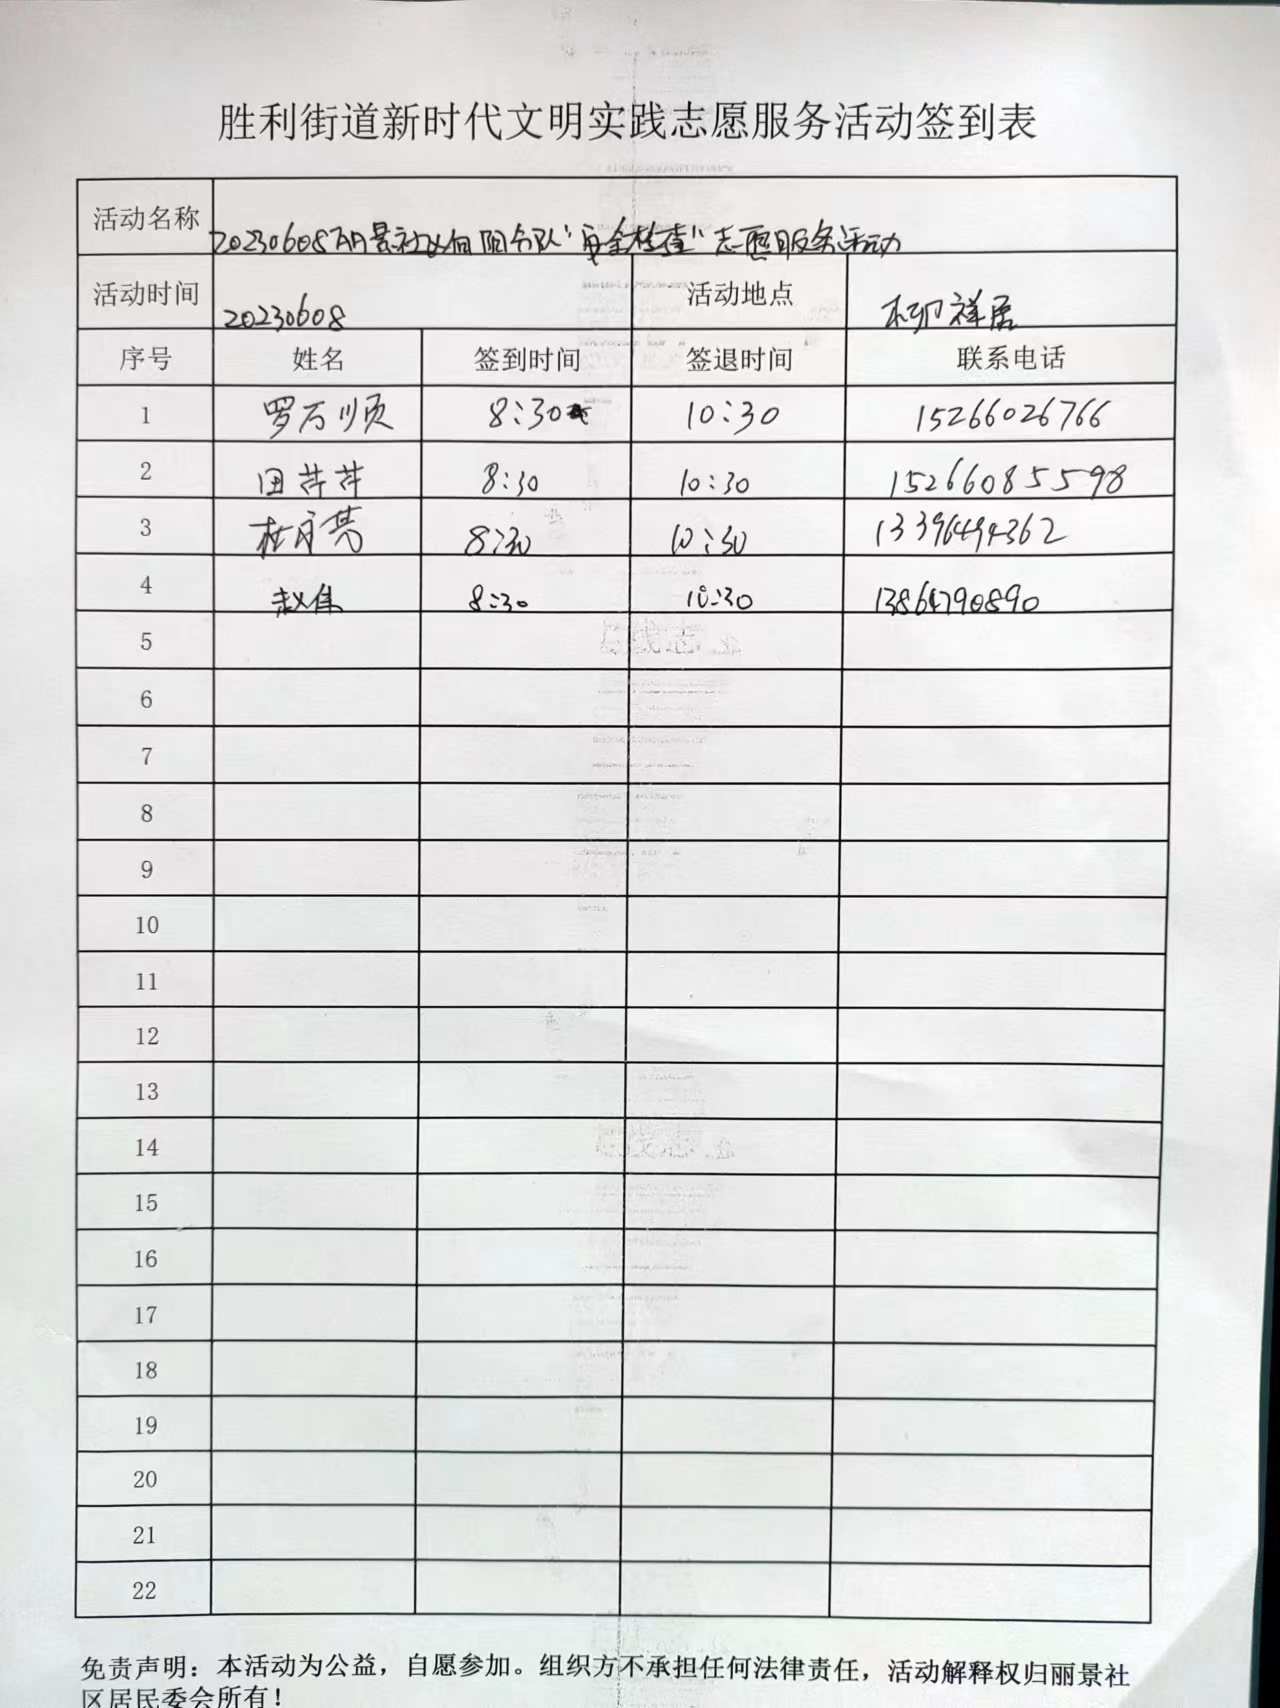 胜利街道新时代文明实践志愿服务活动签到表
活动名称 20230608丽景社区向阳分队"安全检查"志愿服务活动
活动时间 20230608 活动地点 柳祥居
序号 姓名 签到时间 签退时间 联系电话
1 罗万顺 8:30 10:30 15266026766
2 田芹芹 8:30 10:30 152660855598
3 8:30 10:30 13396494362
4 赵伟 8:30 10:30 13864790890
5
6
7
8
9
10
11
12
13
14
15
16
17
18
19
20
21
22
免责声明：本活动为公益，自愿参加。组织方不承担任何法律责任，活动解释权归丽景社
区居民委会所有！